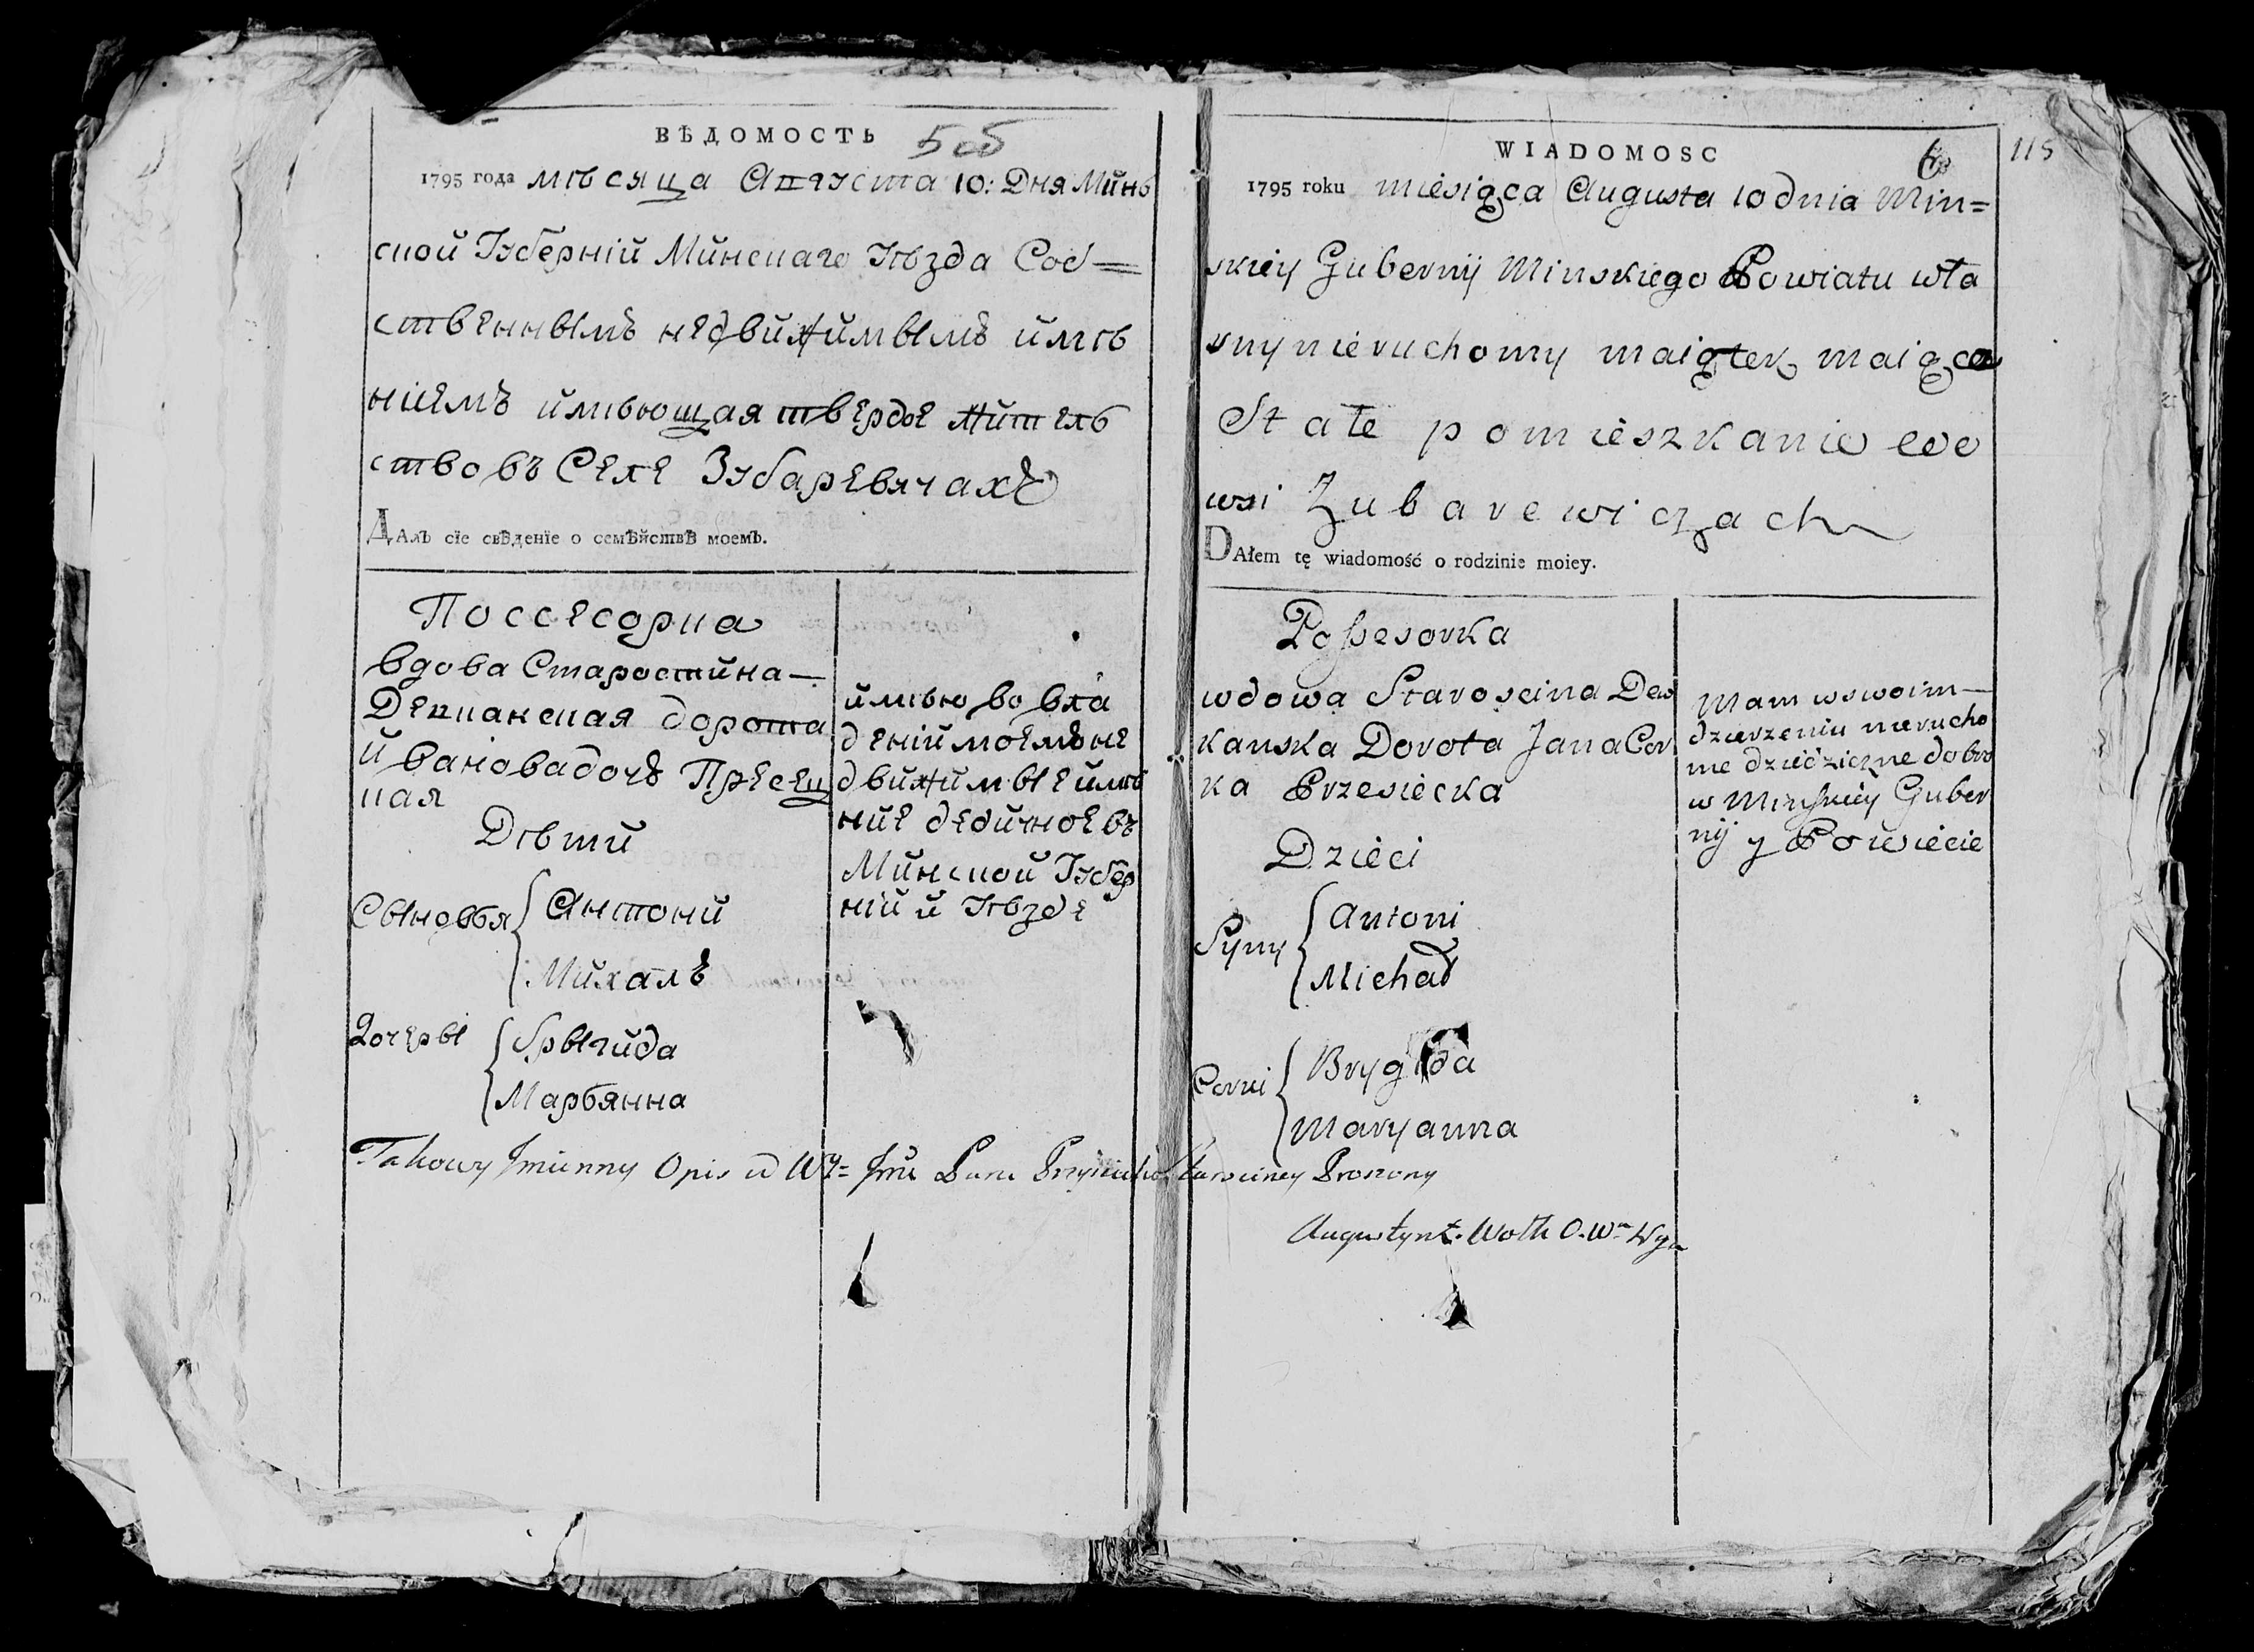 ВѢДОМОСТЬ
1795 года мѣсяца Августа 10: Дня Минь
ской Губерній Минскаго Уѣзда Соб=
ственнымъ недвижимымъ имѣ
ніемъ имѣющая твердое житель
ство въ Селе Зубаревичахъ
ДАлъ сіе свѣденіе о семѣйствѣ моемъ.
Поссесорка
вдова Старостина—
Девканская дорота
Иванова дочъ Пресец
кая
Дѣти
Сыновья
Антони
Михалъ
Дочеры
Брыгида
Марьянна
имѣю во вла
деній моемъ не
движимые имѣ
ние дедичное въ
Минской Губер
ній и Уѣзде
Takowy Jmienny Opis
WIADOMOSC
6
115
1795 roku miesiąca Augusta 10 dnia Min=
skiey Gubernij Minskiego Powiatu wła
sny nieruchomy maiątek maiąca
Stałe pomieszkanie we
wsi Zubarewiczach
DAłem tę wiadomość o rodzinie moiey.
Possesorka
wdowa Staroscina Dew
kanska Dorota Jana Cor
ka Przesiecka
Dzieci
Syny
Antoni
Michał
Corki
Brygida
Maryanna
Mam w swoim—
dzierzeniu nierucho
me dziedziczne dobro
w Minskiey Guber
nij y Powiecie